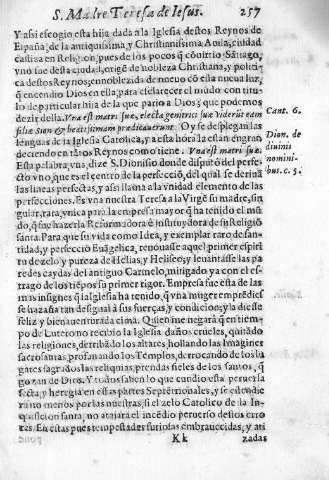 S. Madre Teresa de Iesus. 257
Y assi escogio esta hija dada a la Iglesia destos Reynos de
España, de la antiquissima y Christianissima Auila, ciudad
castiza en Religion, pues de los pocos q̃ conuirtio Sãtiago,
vno fue desta ciudad, origẽ de nobleza Christiana, y politica
destos Reynos, ennoblezida de nueuo cõ esta nueua luz,
que encendio Dios en ella, para esclarecer el mundo con titulo
de particular hija de la que pario a Dios; que podemos
dezir della. Vna est matri suæ, electa genitrici suæ viderũt eam
filiæ Sion & beatissimam prædicauerunt. Oy se desplegan las
lenguas de la Iglesia Catolica, y a esta hora la estan engrandeciendo
en tãtos Reynos como tiene. Vna est matri suæ.
Esta palabra, vna, dize S. Dionisio donde disputò del perfecto
vno, que es el centro de la perfecciõ, del qual se deriuã
las lineas perfectas, y assi llama a la vnidad elemento de las
perfecciones. Es vna nuestra Teresa a la Virgẽ su madre, singular,
rara, vnica para la empresa mayor q̃ ha tenido el mũdo,
q̃ fue hazerla Reformadora è instituydora de su Religiõ
santa. Para que su vida como Idea, y exemplar raro de santidad,
y perfecciõ Euãgelica, renouasse aquel primer espiritu
de zelo y pureza de Helias, y Heliseo; y leuantasse las paredes
caydas del antiguo Carmelo, mitigado ya con el estrago
de los tiẽpos su primer rigor. Empresa fue esta de las
mas insignes q̃ la Iglesia ha tenido, q̃ vna muger emprẽdiesse
hazaña tan desigual a sus fuerças, y condicion; y la diesse
feliz y bienauenturada cima. Quien me negarà q̃ en tiempo
de Lutero no recibio la Iglesia daños crueles, quitãdo
las religiones, derribãdo los altares, hollando las Imagines
sacrosantas, profanando los Templos, derrocando de los lugares
sagrados las reliquias, prendas fieles de los santos, q̃
gozan de Dios. Y todos saben lo que cundio esta peruersa
secta, y heregia en estas partes Septẽtrionales, y se estendiera
no menos por las nuestras, si el zelo Catolico de la Inquisicion
santa, no atajara el incẽdio peruerso destos errores.
En estas pues tempestades furiosas embrauecidas, y assi
Kk zadas
Cant. 6.
Dion. de
diuinis
nomini-
bus. c. 5.